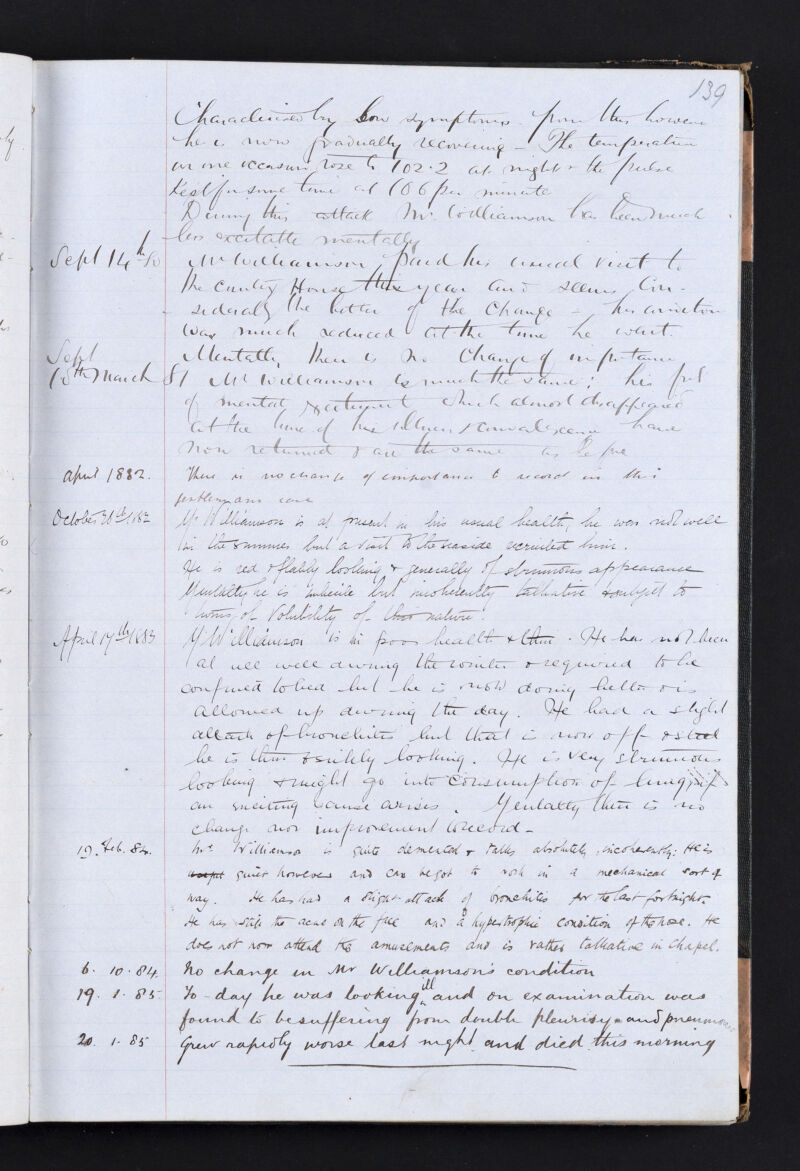 139
Characterised by low symptoms from this however
he is now gradually recovering – The temperature
on one occasion rose to 102.2 at night & the pulse
kept for some time at 106 per minute
During this attack Mr. Williamson has been much
less excitable mentally
Sept 14th 80 Mr Williamson paid his usual visit to
the Country House this year and seems con-
siderably the better of the change –
was much reduced at the time he went.
Sept Mentally there is no change of importance
15th March 81 Mr Williamson is much the same; his
of mental excitement which almost disappeared
at the time of his illness & convalescence have
now returned & are the same as before
April 1882. There is no change of importance to record in this
gentlemans case
October 28th 1882 Mr Williamson is at present in his usual health, he was not well
in the summer but a visit to the seaside recruited him.
He is red & flabby looking & generally of strumous appearance
Mentally he is imbecile but incoherently talkative & subject to
of volubility of this nature.
April 17th 1883 Mr Williamson is in poor health & thin. He has not been
at all well during the winter & required to be
confined to bed but he is now doing better & is
allowed up during the day. He had a slight
attack of bronchitis but that is now off
he is thin & sickly looking. He is very strumous
looking & might go into consumption of lungs if
an exciting cause arises. Mentally there is no
change nor improvement to record –
19. Feb. 84. Mr. Williamson is quite demented & talks absolutely incoherently; He is
quiet however and can be got to work in a mechanical sort of
way. He has had a slight attack of bronchitis for the last fortnight.
He has still the acne on the face and a hypertrophic condition of the nose. He
does not now attend the amusements and is rather talkative in Chapel.
6. 10. 84. No change in Mr Williamson's condition
19. 1. 85 To-day he was looking ill and on examination was
found to be suffering from double pleurisy and pneumonia
20. 1. 85 Grew rapidly worse last night and died this morning